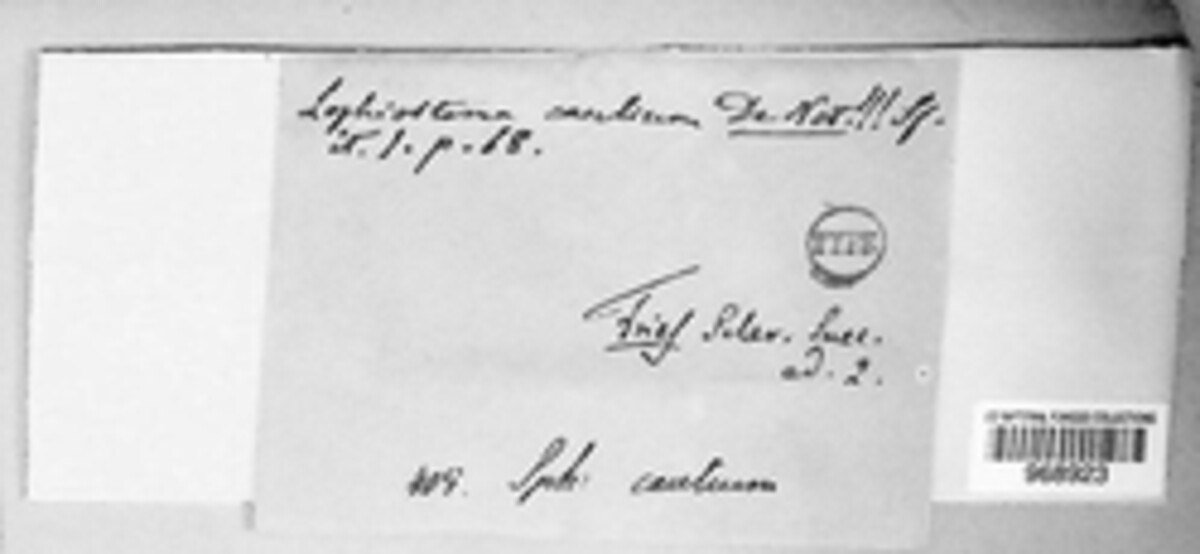 Lophiostoma caulium De Not.!!! Sf.
it. 1. p. 68.
Fries Scler. Suec.
ed. 2.
409. Sph: caulium
US NATIONAL FUNGUS COLLECTIONS
968923